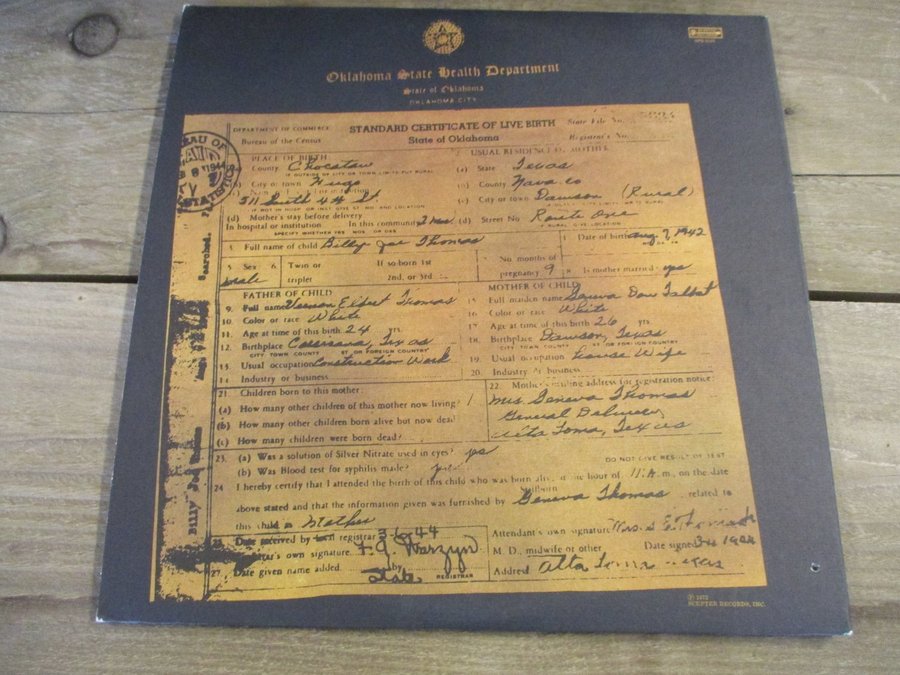 Oklahoma State Health Department
State of Oklahoma
OKLAHOMA CITY
DEPARTMENT OF COMMERCE
Bureau of the Census
STANDARD CERTIFICATE OF LIVE BIRTH
State of Oklahoma
State File No.
Registrar's No.
PLACE OF BIRTH
County Choctaw
City or town Hugo
511 South 4th St.
(d) Mother's stay before delivery
In hospital or institution. In this community 2 mos
SPECIFY WHETHER YRS. MOS. OR DAS.
USUAL RESIDENCE OF MOTHER
(a) State Texas
County
(c) City or town Dawson (Rural)
(d) Street No. Route One
Full name of child Billy Joe Thomas
Date of birth Aug 7, 1942
5. Sex male
6. Twin or triplet
If so born 1st 2nd, or 3rd
No months of pregnancy 9
Is mother married yes
FATHER OF CHILD
9. Full name Vernon Elbert Thomas
10. Color or race White
11. Age at time of this birth 24 yrs.
12. Birthplace Corsicana, Texas
CITY TOWN COUNTY ST OR FOREIGN COUNTRY
13. Usual occupation Construction Work
14. Industry or business
MOTHER OF CHILD
15. Full maiden name Geneva
16. Color or race White
17. Age at time of this birth 26 yrs.
18. Birthplace Dawson, Texas
CITY TOWN COUNTY ST OR FOREIGN COUNTRY
19. Usual occupation House Wife
20. Industry or business
21. Children born to this mother:
(a) How many other children of this mother now living? 1
(b) How many other children born alive but now dead?
(c) How many children were born dead?
22. Mother's mailing address for registration notice:
Mrs. Geneva Thomas
General
Texas
23. (a) Was a solution of Silver Nitrate used in eyes? yes
(b) Was Blood test for syphilis made? yes
DO NOT GIVE RESULT OF TEST
24. I hereby certify that I attended the birth of this child who was born alive at the hour of 11 A.m., on the date
Stillborn
above stated and that the information given was furnished by Geneva Thomas, related to
this child as Mother
Date received by local registrar 3-6-44
own signature F. J. Warzyn
27. Date given name added by State REGISTRAR
Attendant's own signature
M. D., midwife or other
Date signed
Address
1944
STATISTICS
Searched.
Billy Joe Thomas
Ⓟ 1972
SCEPTER RECORDS, INC.